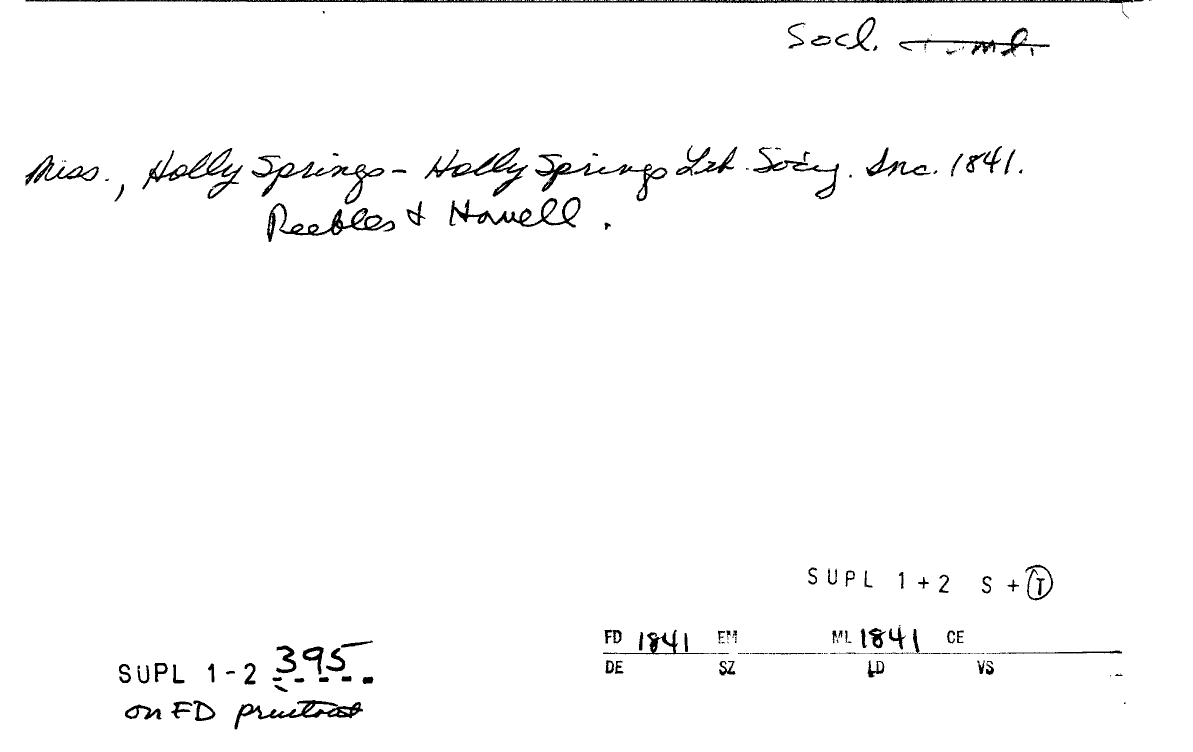 Socl.
Miss., Holly Springs - Holly Springs Lit. Socy. Inc. 1841.
Peebles & Howell.
SUPL 1+2 S + T
FD 1841 EM ML 1841 CE
DE SZ LD VS
SUPL 1-2 395
on FD printout